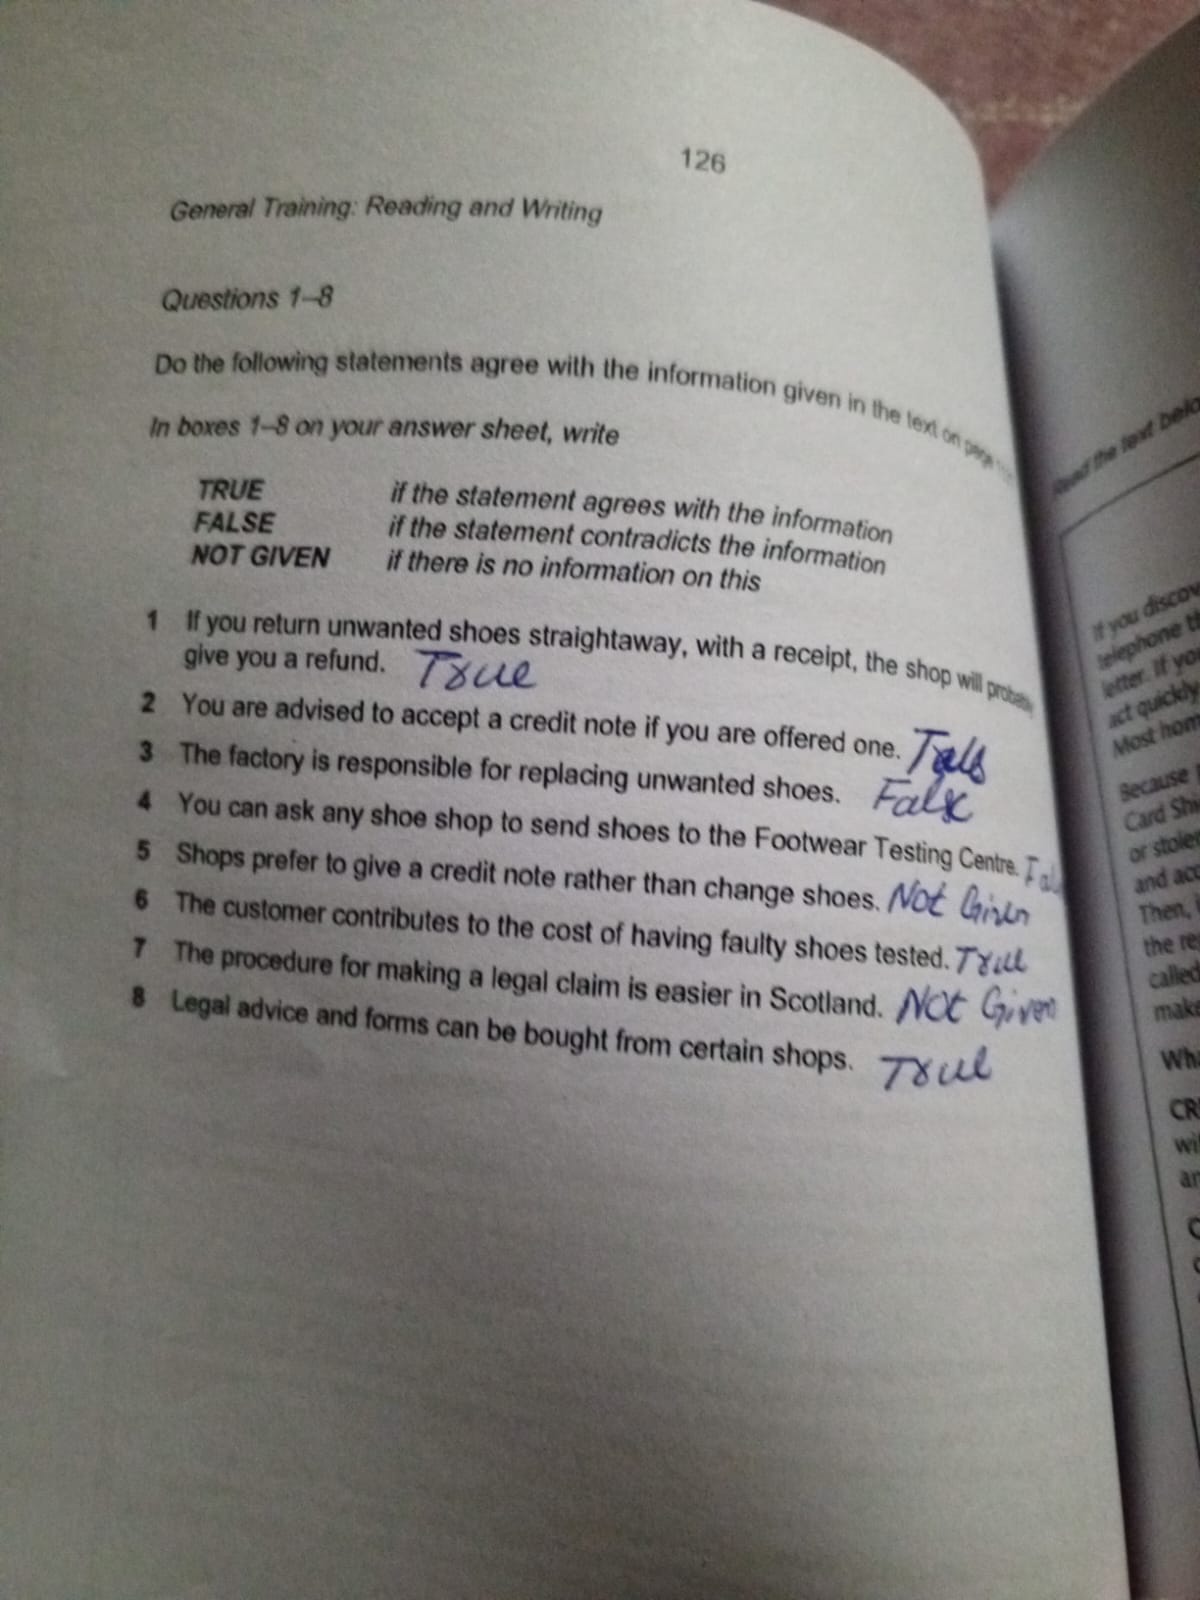 126
General Training: Reading and Writing
Questions 1–8
Do the following statements agree with the information given in the text on page
In boxes 1–8 on your answer sheet, write
TRUE if the statement agrees with the information
FALSE if the statement contradicts the information
NOT GIVEN if there is no information on this
1 If you return unwanted shoes straightaway, with a receipt, the shop will probably
give you a refund. True
2 You are advised to accept a credit note if you are offered one.
3 The factory is responsible for replacing unwanted shoes. False
4 You can ask any shoe shop to send shoes to the Footwear Testing Centre.
5 Shops prefer to give a credit note rather than change shoes. Not Given
6 The customer contributes to the cost of having faulty shoes tested. True
7 The procedure for making a legal claim is easier in Scotland. Not Given
8 Legal advice and forms can be bought from certain shops. True
Read the text
If you
telephone
letter. If
act quickly
Most
Because
Card
or
and
Then,
the
called